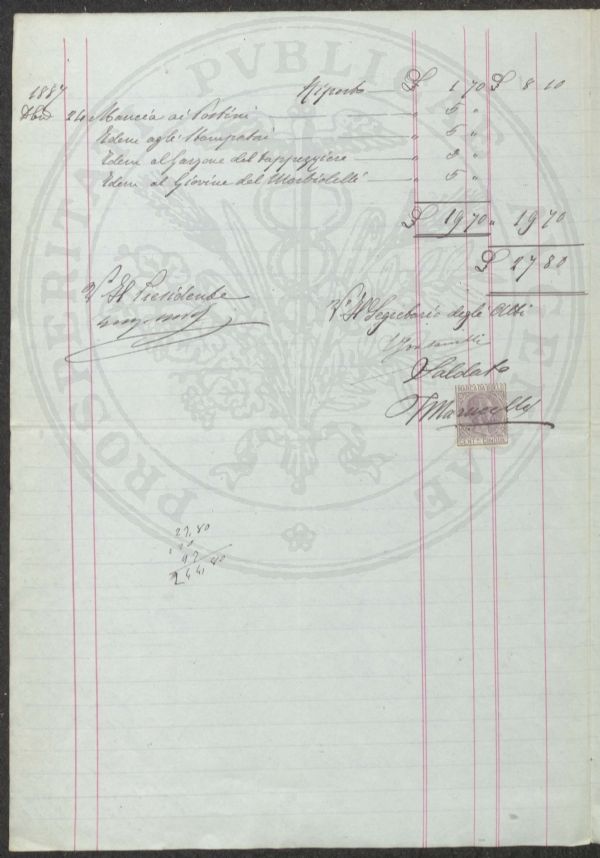 1887 Riporto £ 1 70 £ 8 10
Dbre 24 Mancia ai Postini " 5 "
Idem agli Stampatori " 5 "
Idem al Garzone del tappezziere " 3 "
Idem al Giovine del " 5 "
£ 19 70 " 19 70
£ 27 80
V° Il Presidente
V° Il Segretario degli Atti
Saldato
MARCA DA BOLLO
CENT. CINQUE
27,80
244,80
PROSPERITAS PVBLICAE